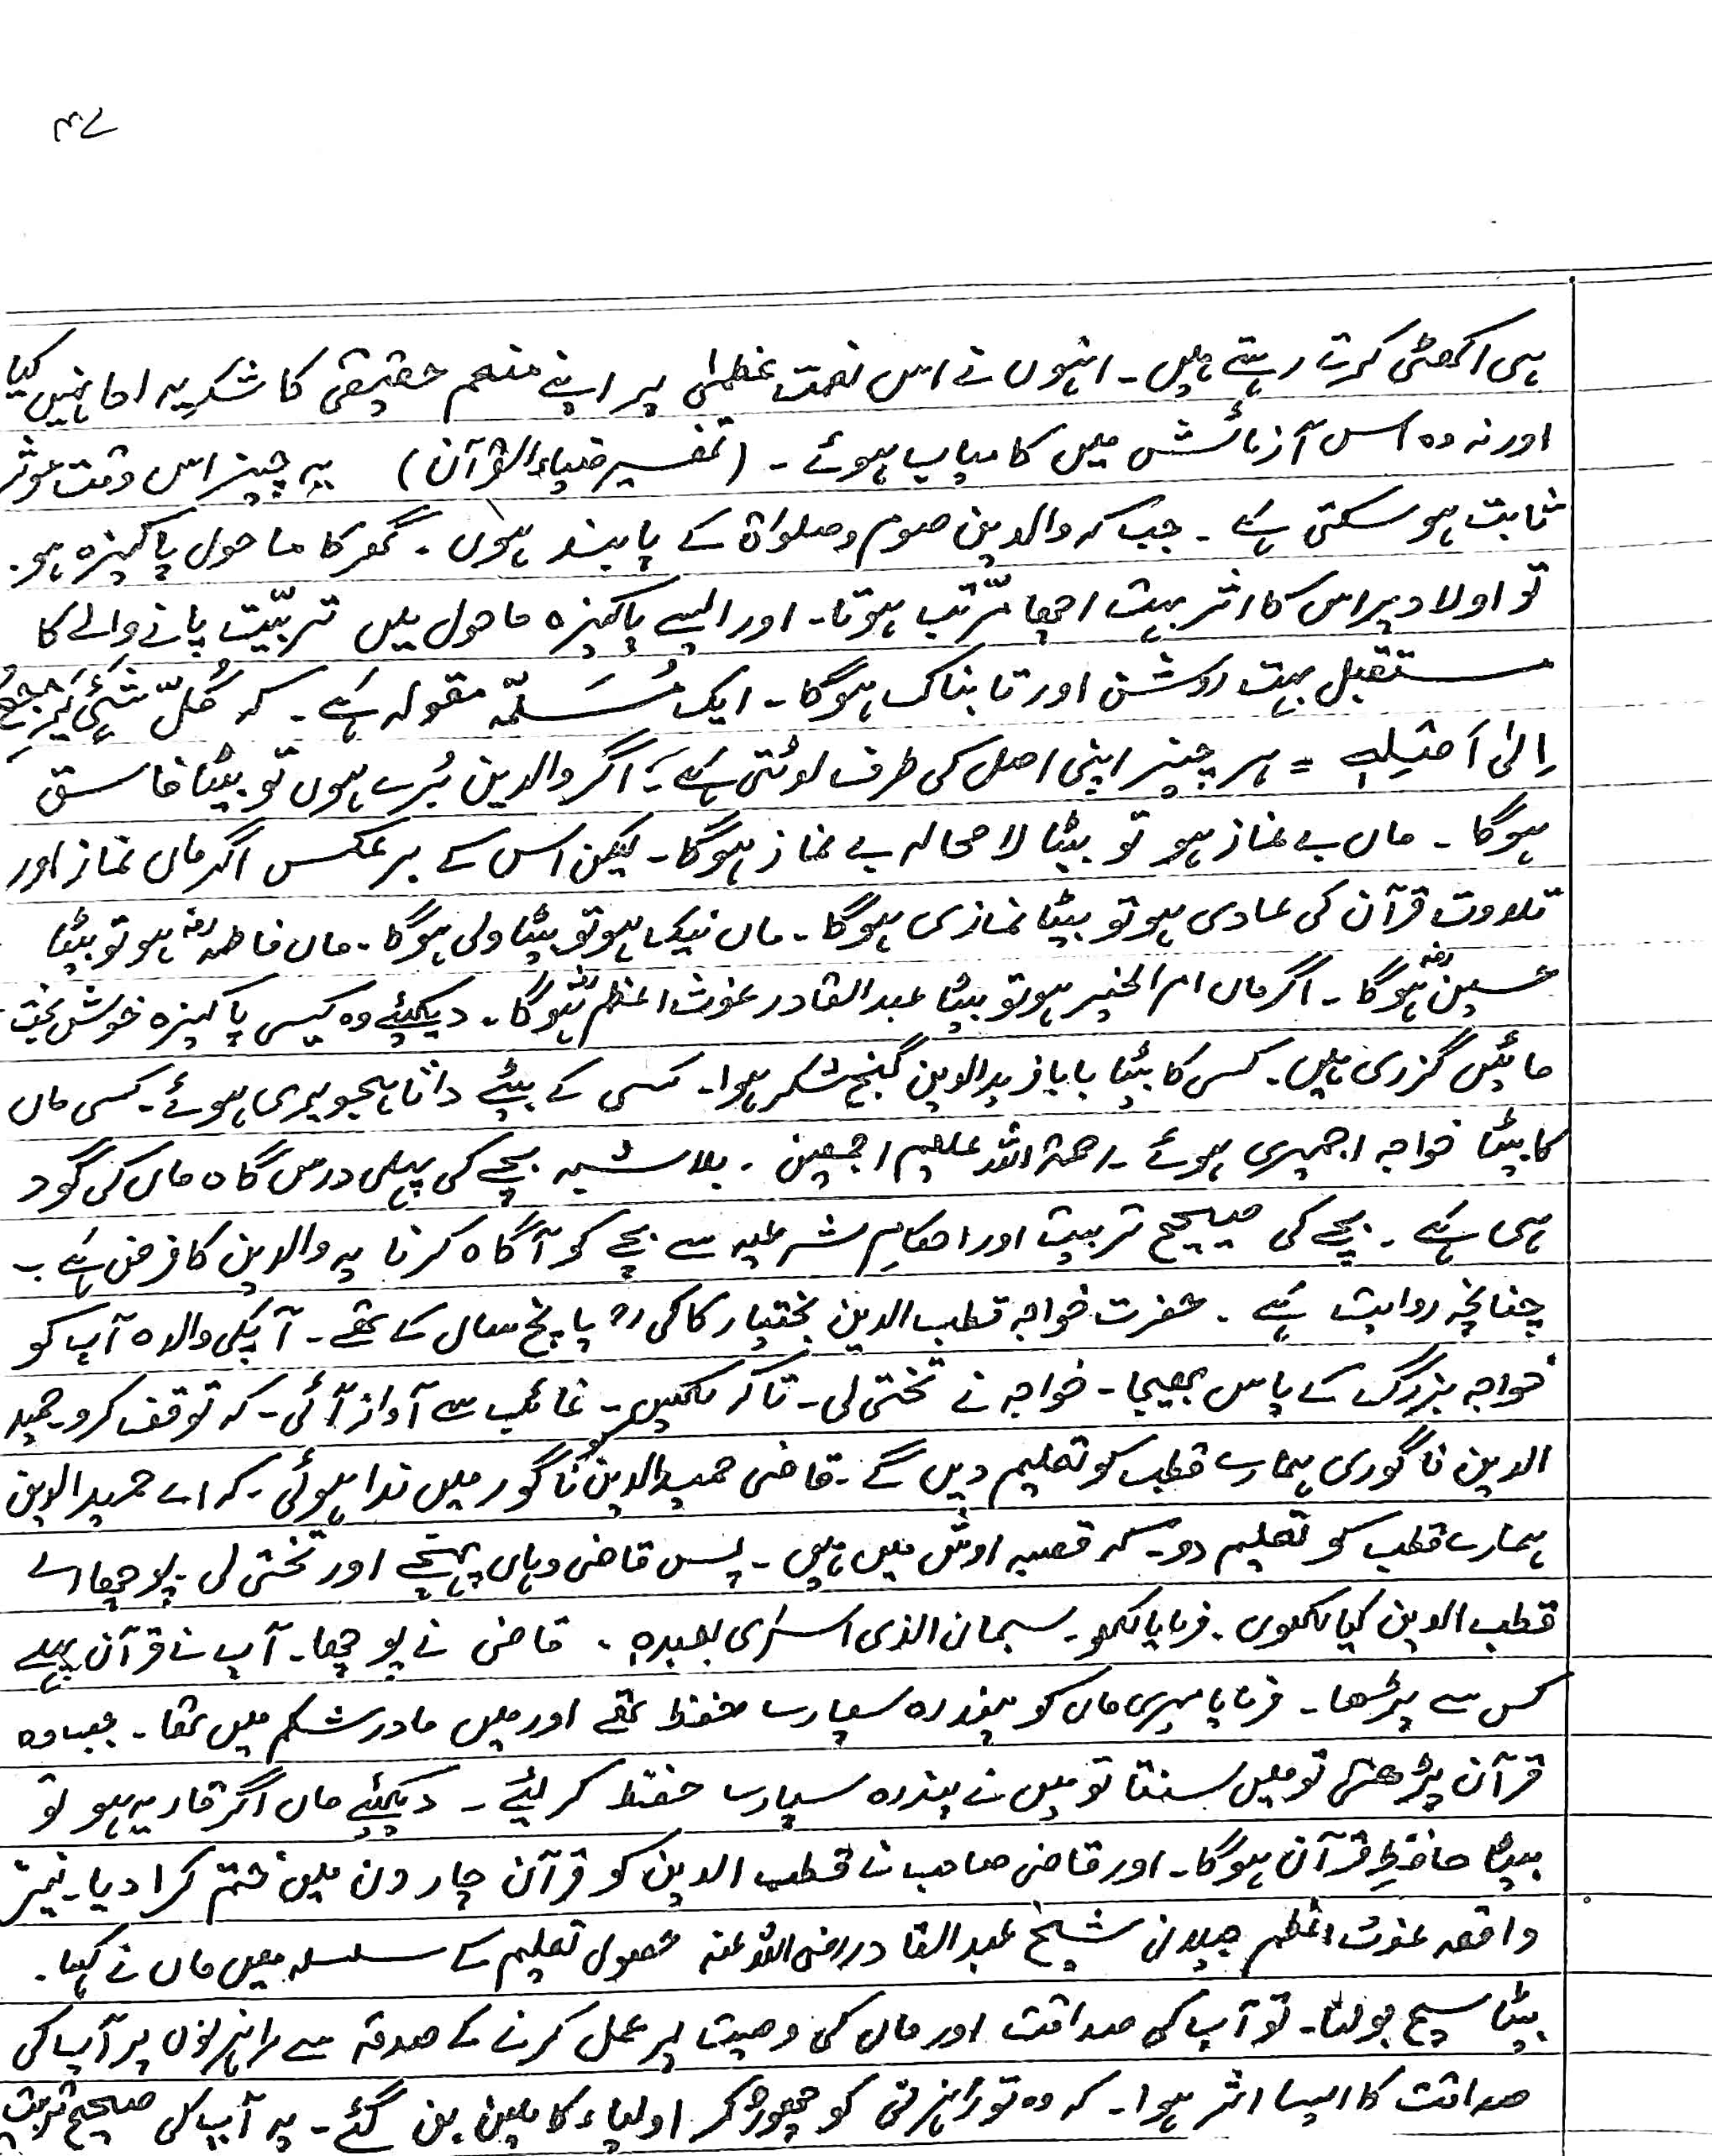 ۴۷
ہی اکھٹی کرتے رہتے ہیں۔ انہوں نے اس نعمت عظمیٰ پر اپنے منعم حقیقی کا شکریہ ادا نہیں کیا
اور نہ وہ اس آزمائش میں کامیاب ہوئے ۔ (تفسیر ضیاء القرآن) یہ چیز اس وقت موثر
ثابت ہو سکتی ہے ۔ جب کہ والدین صوم و صلواۃ کے پابند ہوں۔ گھر کا ماحول پاکیزہ ہو۔
تو اولاد پر اس کا اثر بہت اچھا مرّتب ہوتا۔ اور ایسے پاکیزہ ماحول میں تربیّت پانے والے کا
مستقبل بہت روشن اور تابناک ہوگا۔ ایک مُسَلّمہ مقولہ ہے ۔ کہ کُلّ شَئیٍ یَرجِعُ
اِلیٰ اَصْلِہٖ = ہر چیز اپنی اصل کی طرف لوٹتی ہے۔ اگر والدین بُرے ہوں تو بیٹا فاسق
ہوگا ۔ ماں بے نماز ہو تو بیٹا لا محالہ بے نماز ہوگا۔ لیکن اس کے برعکس اگر ماں نماز اور
تلاوت قرآن کی عادی ہو تو بیٹا نمازی ہوگا۔ ماں نیک ہو تو بیٹا ولی ہوگا۔ ماں فاطمہ رضہ ہو تو بیٹا
حسین رضہ ہوگا ۔ اگر ماں ام الخیر ہو تو بیٹا عبد القادر غوث اعظم ہوگا۔ دیکھئے وہ کیسی پاکیزہ خوش بخت
مائیں گزری ہیں۔ کس کا بیٹا بابا فرید الدین گنج شکر ہوا۔ کسی کے بیٹے داتا ہجویری ہوئے۔ کسی ماں
کا بیٹا خواجہ اجمیری ہوئے ۔رحمۃ اللہ علیہم اجمعین ۔ بلا شبہ بچے کی پہلی درس گاہ ماں کی گود
ہی ہے ۔ بچے کی صیحیح تربیت اور احکامِ شرعیہ سے بچے کو آگاہ کرنا یہ والدین کا فرض ہے ۔
چنانچہ روایت ہے ۔ حضرت خواجہ قطب الدین بختیار کاکی رح پانچ سال کے تھے ۔ آپکی والدہ آپ کو
خواجہ بزرگ کے پاس بھیجا ۔ خواجہ نے تختی لی۔ تاکہ لکھیں۔ غائب سے آواز آئی۔ کہ توقف کرو۔ حمید
الدین ناگوری ہمارے قطب کو تعلیم دیں گے ۔ قاضی حمید الدین کو ناگور میں ندا ہوئی۔ کہ اے حمید الدین
ہمارے قطب کو تعلیم دو۔ کہ قصبہ اوش میں ہیں ۔ پس قاضی وہاں پہنچے اور تختی لی ۔ پوچھا اے
قطب الدین کیا لکھوں۔ فرمایا لکھو۔ سبحان الذی اسریٰ بعبدہٖ ۔ قاضی نے پوچھا۔ آپ نے قرآن پہلے
کس سے پڑھا۔ فرمایا میری ماں کو پندرہ سیپارے حفظ تھے اور میں مادر شکم میں تھا۔ جب وہ
قرآن پڑھتی تو میں سنتا تو میں نے پندرہ سیپارے حفظ کر لیئے ۔ دیکھئے ماں اگر قاریہ ہو تو
بیٹا حافظِ قرآن ہوگا۔ اور قاضی صاحب نے قطب الدین کو قرآن چار دن میں ختم کرا دیا۔ نیز
واقعہ غوث اعظم جیلانی شیخ عبد القادر رضی اللہ عنہ حصول تعلیم کے سلسلہ میں ماں نے کہا۔
بیٹا سچ بولنا۔ تو آپ کی صداقت اور ماں کی وصیت پر عمل کرنے کے صدقہ سے راہزنوں پر آپ کی
صداقت کا ایسا اثر ہوا۔ کہ وہ تو راہزنی کو چھوڑ کر اولیاء کاملین بن گئے ۔ یہ آپ کی صحیح تربیت